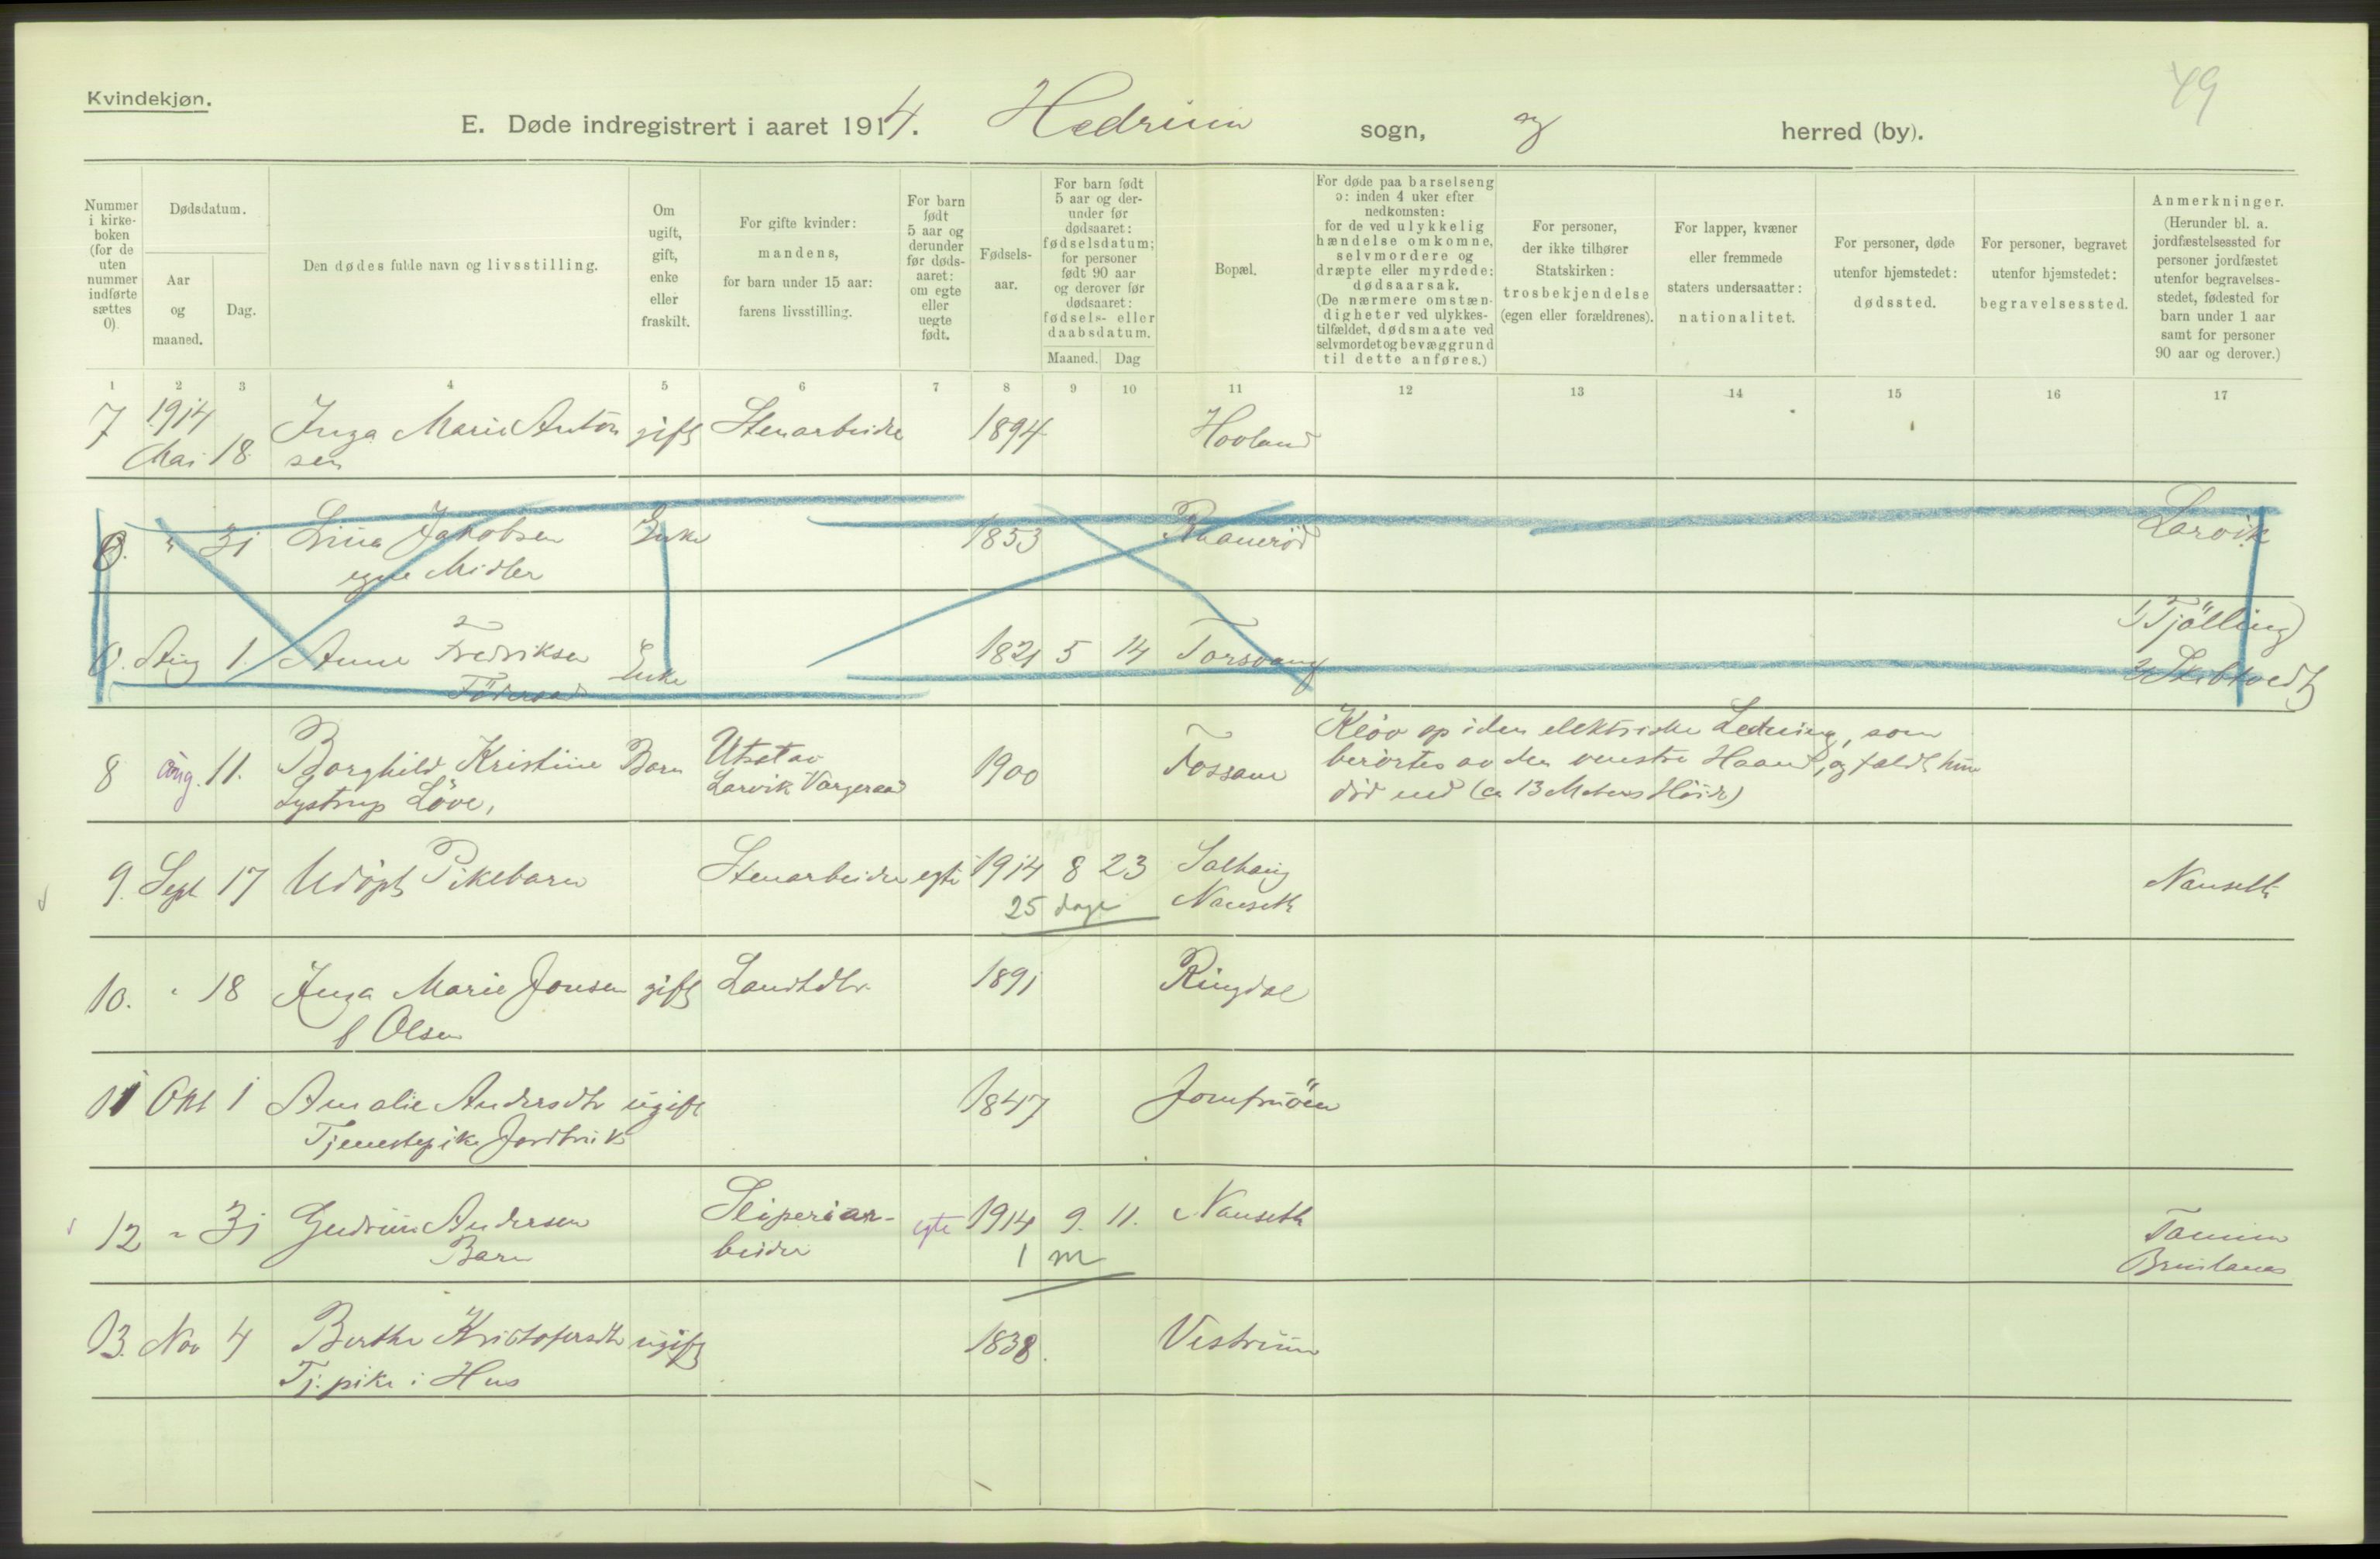 49
Kvindekjøn.
E. Døde indregistrert i aaret 1914. Hedrum sogn, og herred (by).
Nummer i kirkeboken (for de uten nummer indførte sættes 0).
Dødsdatum.
Aar og maaned.
Dag.
Den dødes fulde navn og livsstilling.
Om ugift, gift, enke eller fraskilt.
For gifte kvinder: mandens, for barn under 15 aar: farens livsstilling.
For barn født 5 aar og derunder før dødsaaret: om egte eller uegte født.
Fødselsaar.
For barn født 5 aar og derunder før dødsaaret: fødselsdatum; for personer født 90 aar og derover før dødsaaret: fødsels- eller daabsdatum.
Maaned. Dag
Bopæl.
For døde paa barselseng ɔ: inden 4 uker efter nedkomsten: for de ved ulykkelig hændelse omkomne, selvmordere og dræpte eller myrdede: dødsaarsak. (De nærmere omstændigheter ved ulykkestilfældet, dødsmaate ved selvmordet og bevæggrund til dette anføres.)
For personer, der ikke tilhører Statskirken: trosbekjendelse (egen eller forældrenes).
For lapper, kvæner eller fremmede staters undersaatter: nationalitet.
For personer, døde utenfor hjemstedet: dødssted.
For personer, begravet utenfor hjemstedet: begravelsessted.
Anmerkninger. (Herunder bl. a. jordfæstelsessted for personer jordfæstet utenfor begravelsesstedet, fødested for barn under 1 aar samt for personer 90 aar og derover.)
1 2 3 4 5 6 7 8 9 10 11 12 13 14 15 16 17
7 1914 Mai 18 Inga Marie Anton gift Stenarbeider 1894 Hovland
sen
0. " 31 Lina Jakobsen Enke 1853 Raanerød Larvik
egne Midler
0. Aug 1. Anne Fredriksen Enke 1821 5 14 Torsvang 1) Tjølling
Föderaad 2)
8 Aug. 11. Borghild Kristine Barn Utsat av 1900 Fossane
Lystrup Löve, Larvik Vergeraad
Kløv op i den elektriske Ledning, som
berørtes av den venstre Haand, og faldt hun
död ned (ca 13 Meters Höide)
9. Sept 17 Udöpt Pikebarn Stenarbeider egte 1914 8 23 Solhaug Nanseth
25 dage Nanseth
10. " 18 Inga Marie Jonsen gift 1891 Ringdal
f Olsen
11 Okt 1 Amalie Andersdtr ugift 1847 Jomfruöen
Tjenestepike Jordbruk
12 " 31 Gudrun Andersen Sliperiar- egte 1914 9. 11. Nanseth Tanum
Barn beider 1 m Brunlanes
13. Nov 4 Berthe Kristofersdtr ugift 1838. Vestrum
Tj. pike i Hus